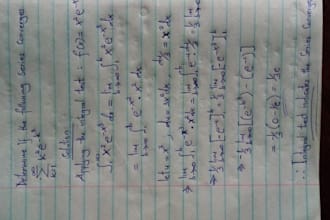 Determine if the following series converges
∞
∑ x²e^-x³
k=1
Solution
Applying the integral test : f(x) = x²e^-x³
∫₁^∞ x²e^-x³ dx = lim b→∞ ∫₁^b x²e^-x³ dx
= lim b→∞ ∫₁^b e^-x³ · x² dx
Let u = x³, du = 3x² dx, du/3 = x² dx
⇒ lim b→∞ ∫₁^b e^-u
⇒ 1/3 lim b→∞ [-e^-u]
⇒ -1/3 lim b→∞ [(e^-b³) - (e^-1)]
= -1/3 (0 - 1/e) = 1/3e
∴ Integral test indicates the Series Converges